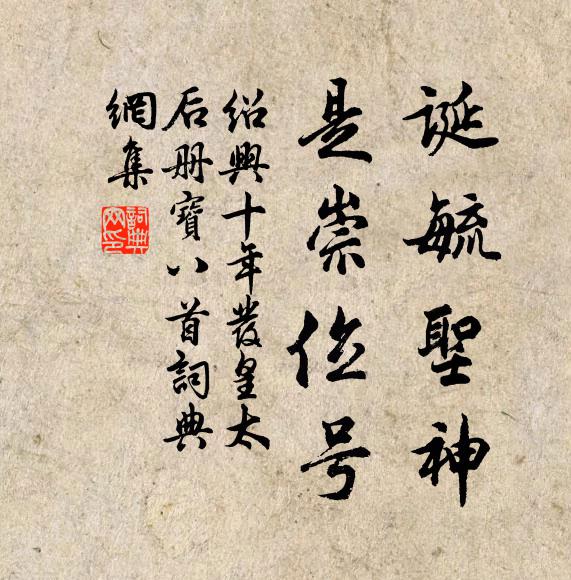 誕毓聖神
是崇位号
紹興十年發皇太
后册寶八首詞典
網集
詞典
网印